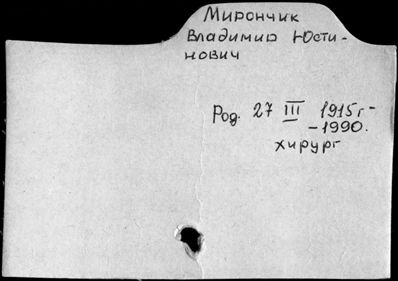 Мирончик
Владимир Юсти-
нович
Род. 27 III 1915 г-
-1990.
хирург